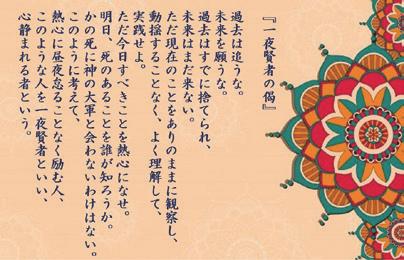 『一夜賢者の偈』
過去は追うな。
未来を願うな。
過去はすでに捨てられ、
未来はまだ来ない。
ただ現在のことをありのままに観察し、
動揺することなく、よく理解して、
実践せよ。
ただ今日すべきことを熱心になせ。
明日、死のあることを誰が知ろうか。
かの死に神の大軍と会わないわけはない。
このように考えて、
熱心に昼夜怠ることなく励む人、
このような人を一夜賢者といい、
心静まれる者という。